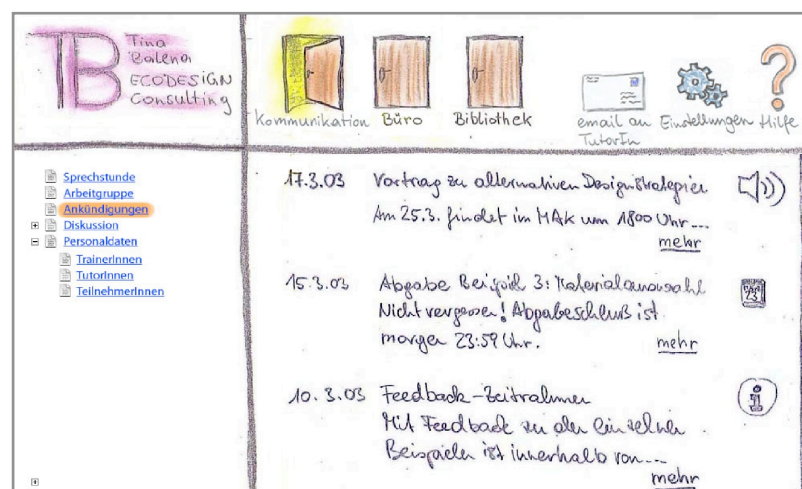 TB
Tina
Balena
ECODESIGN
Consulting
Kommunikation
Büro
Bibliothek
email an
TutorIn
Einstellungen
Hilfe
Sprechstunde
Arbeitgruppe
Ankündigungen
Diskussion
Personaldaten
TrainerInnen
TutorInnen
TeilnehmerInnen
17.3.03 Vortrag zu alternativen Designstrategien
Am 25.3. findet im MAK um 1800 Uhr...
mehr
15.3.03 Abgabe Beispiel 3: Materialauswahl
Nicht vergessen! Abgabeschluß ist
morgen 23:59 Uhr.
mehr
23
10.3.03 Feedback-Zeitrahmen
Mit Feedback zu den einzelnen
Beispielen ist innerhalb von...
mehr
i